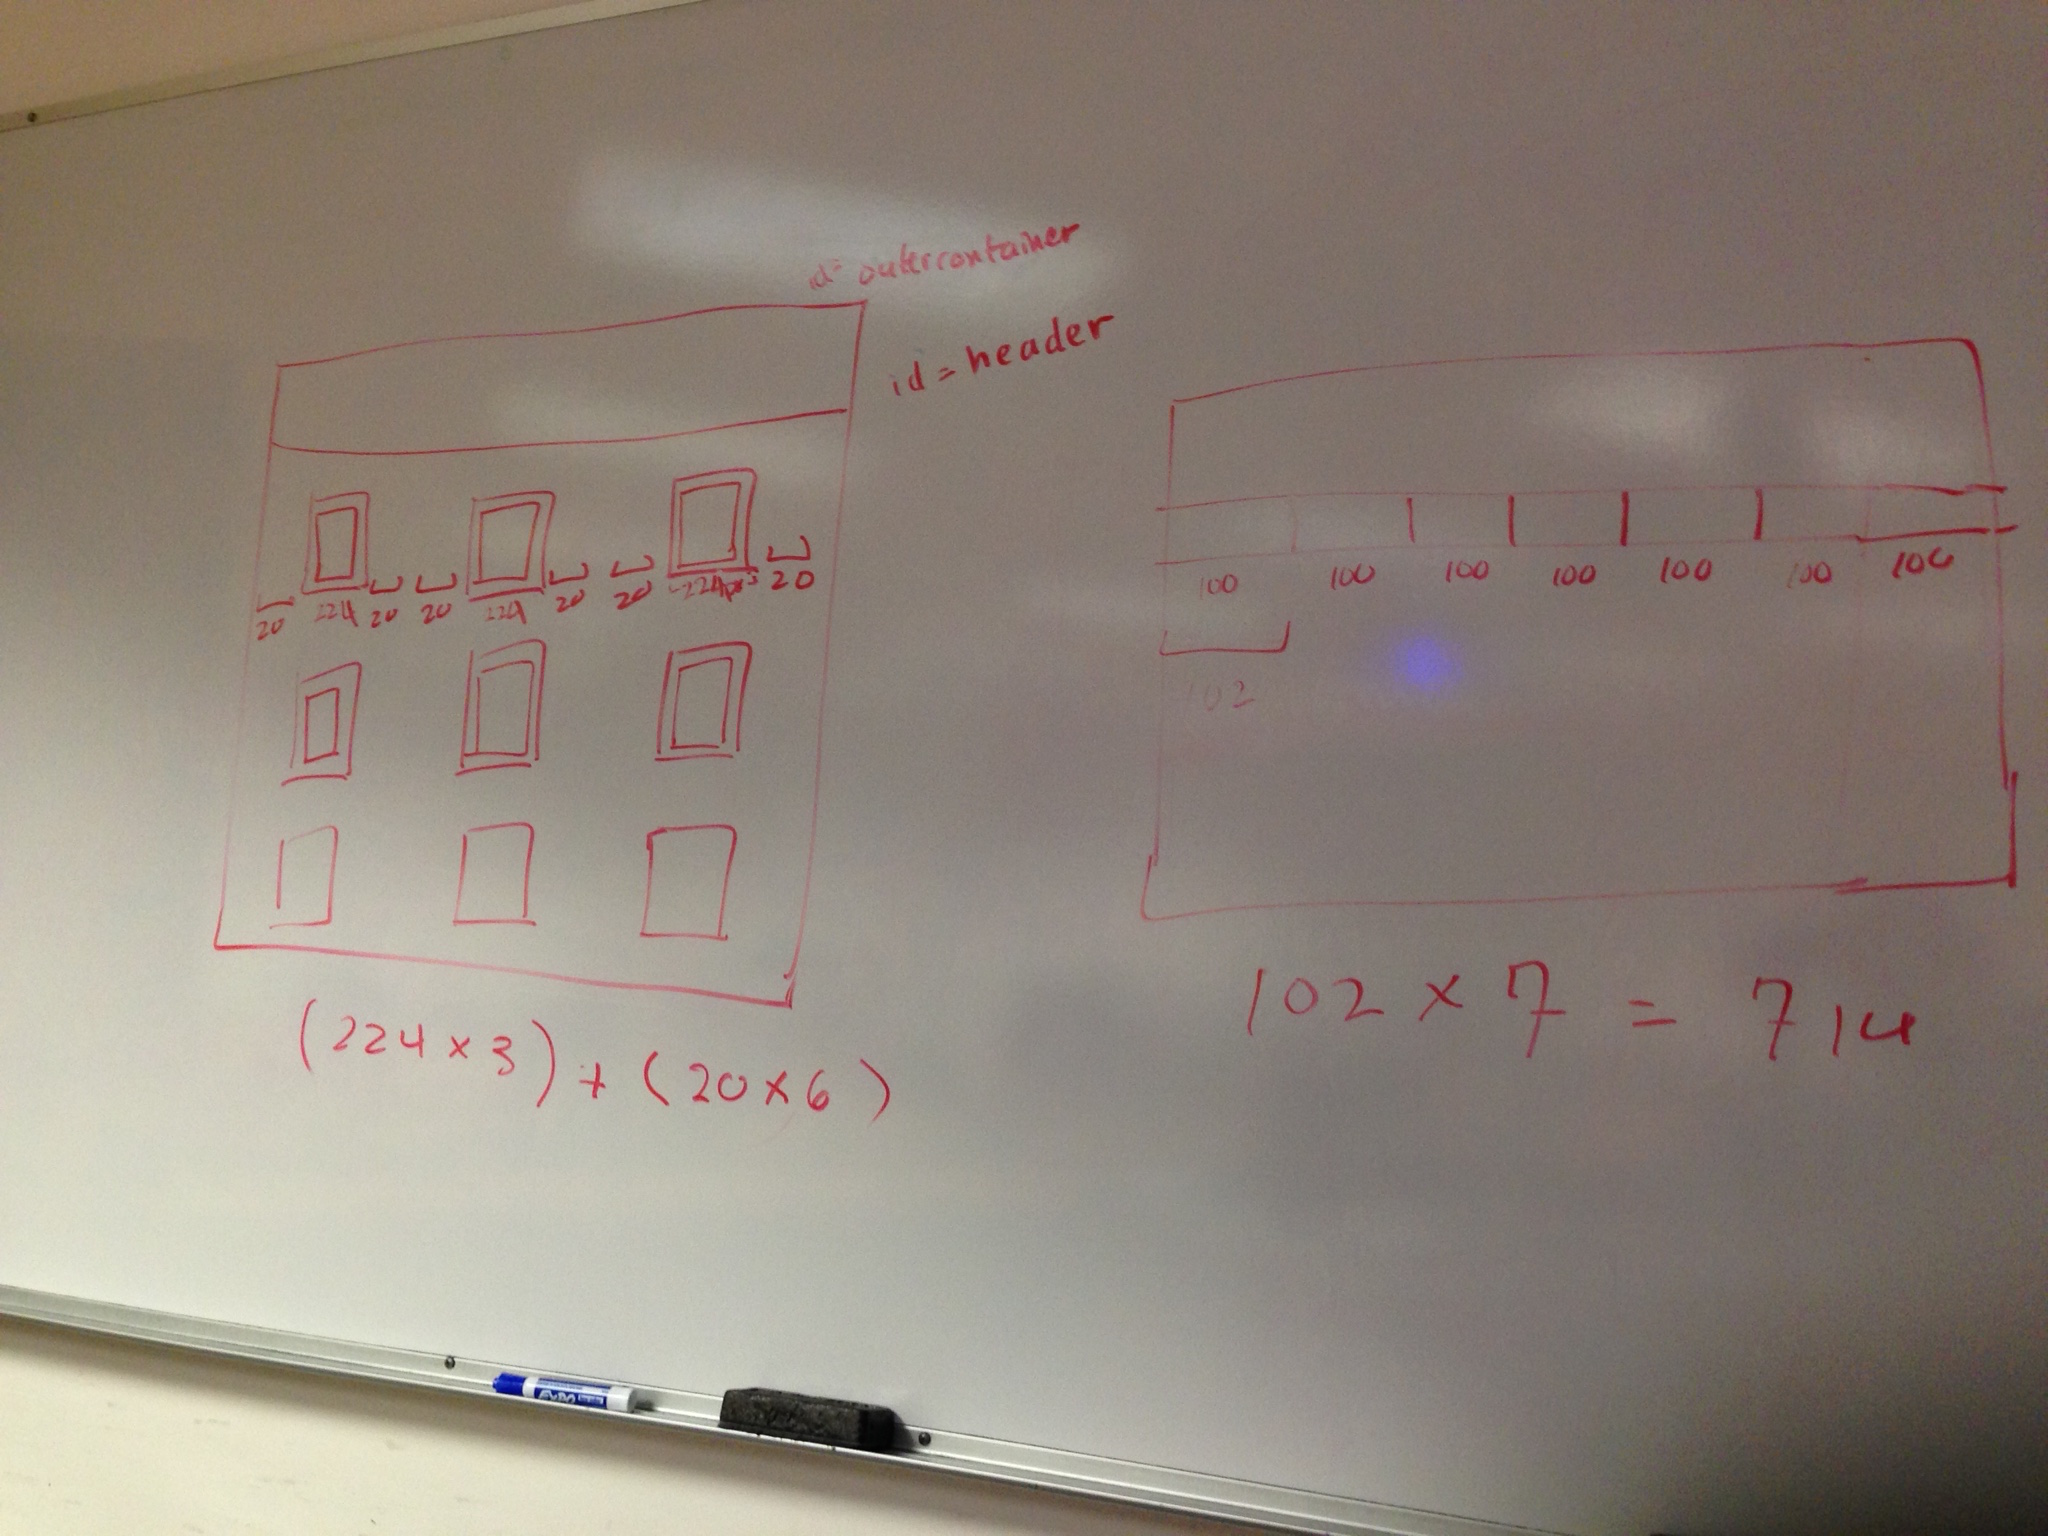 id= outercontainer
id = header
20 224 20 20 224 20 20 224px 20
(224 x 3) + (20 x 6)
100 100 100 100 100 100 100
102
102 x 7 = 714
EXPO